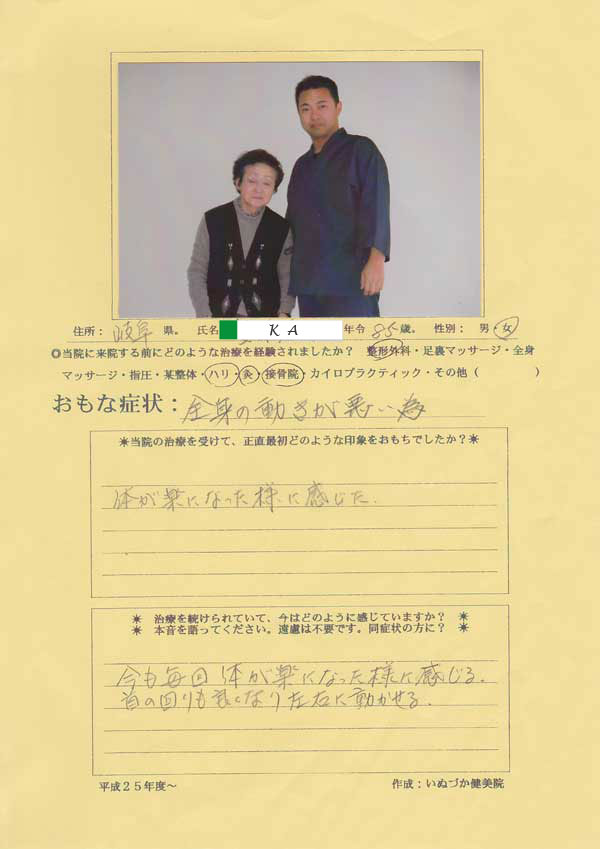 住所： 岐阜 県。 氏名 K A 年令 85 歳。 性別： 男・女
◎当院に来院する前にどのような治療を経験されましたか？ 整形外科・足裏マッサージ・全身
マッサージ・指圧・某整体・ハリ・灸・接骨院・カイロプラクティック・その他（ ）
おもな症状：全身の動きが悪い為
＊当院の治療を受けて、正直最初どのような印象をおもちでしたか？＊
体が楽になった様に感じた.
＊ 治療を続けられていて、今はどのように感じていますか？ ＊
＊ 本音を語ってください。遠慮は不要です。同症状の方に？ ＊
今も毎回体が楽になった様に感じる.
首の回りも良くなり左右に動かせる.
平成２５年度～ 作成：いぬづか健美院